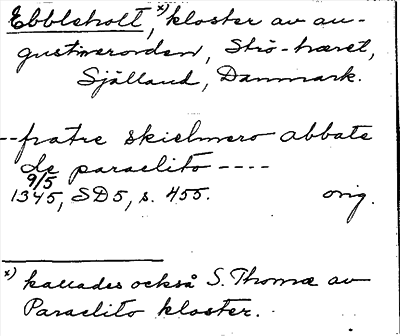 Ebbleholt, x) kloster av au-
gustinerorden, Strö-hæret,
Själland, Danmark.
--fratre skielmero abbate
de paraclito ----
9/5
1345, SD5, s. 455. orig.
x) kallades också S. Thomæ av
Paraclito kloster.